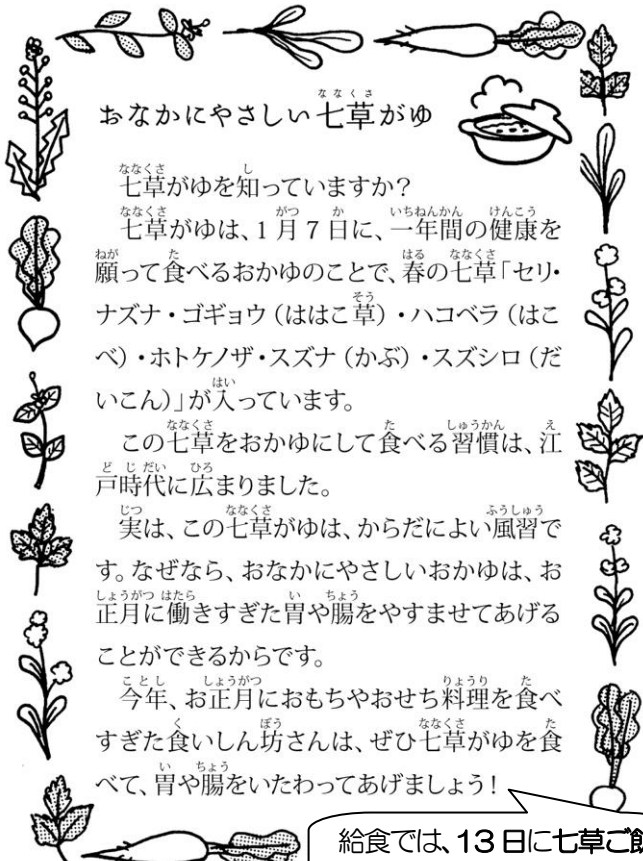 おなかにやさしい七草がゆ
七草がゆを知っていますか?
七草がゆは、1月7日に、一年間の健康を
願って食べるおかゆのことで、春の七草「セリ・
ナズナ・ゴギョウ(ははこ草)・ハコベラ(はこ
べ)・ホトケノザ・スズナ(かぶ)・スズシロ(だ
いこん)」が入っています。
この七草をおかゆにして食べる習慣は、江
戸時代に広まりました。
実は、この七草がゆは、からだによい風習で
す。なぜなら、おなかにやさしいおかゆは、お
正月に働きすぎた胃や腸をやすませてあげる
ことができるからです。
今年、お正月におもちやおせち料理を食べ
すぎた食いしん坊さんは、ぜひ七草がゆを食
べて、胃や腸をいたわってあげましょう!
給食では、13日に七草ご飯